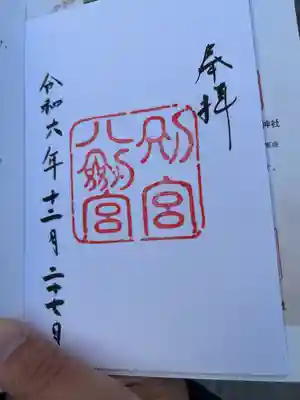 奉拝
別宮
八劔宮
令和六年十二月二十七日
神社